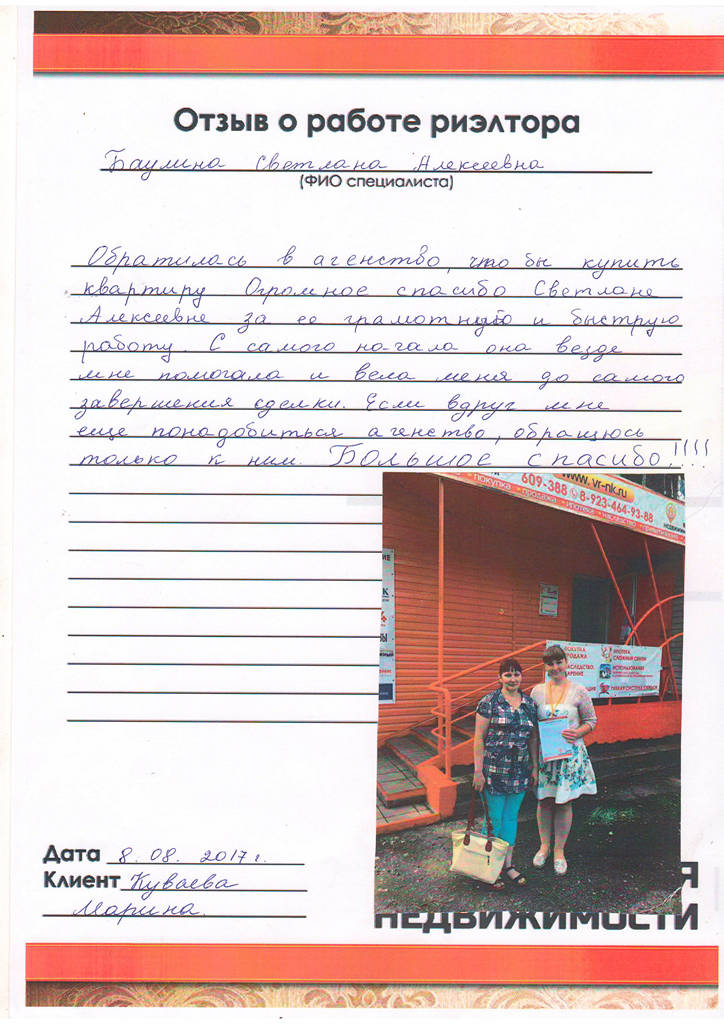 Отзыв о работе риэлтора
Баулина Светлана Алексеевна
(ФИО специалиста)
Обратилась в агенство, что бы купить
квартиру Огромное спасибо Светлане
Алексеевне за ее грамотную и быструю
работу. С самого начала она везде
мне помогала и вела меня до самого
завершения сделки. Если вдруг мне
еще понадобиться агенство, обращюсь
только к ним. Большое спасибо!!!!
www.vr-nk.ru
609-388 8-923-464-93-88
покупка • продажа • ипотека • наследство • приватизация
ПОКУПКА
ПРОДАЖА
НАСЛЕДСТВО
ДАРЕНИЕ
ИПОТЕКА
СЛОЖНЫЕ СДЕЛКИ
ИСПОЛЬЗОВАНИЕ
Дата 8. 08. 2017 г.
Клиент Куваева
Марина.
Я
НЕДВИЖИМОСТИ